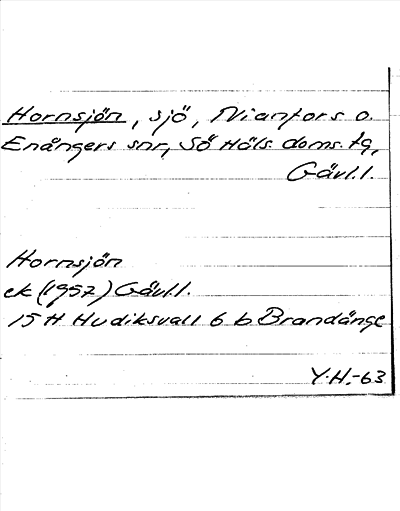 Hornsjön, sjö, Nianfors o.
Enångers snr, Sö Häls. doms. tg,
Gävl.l.
Hornsjön
ek (1957) Gävl.l.
15 H Hudiksvall 6 b Brandänge
Y.H.-63